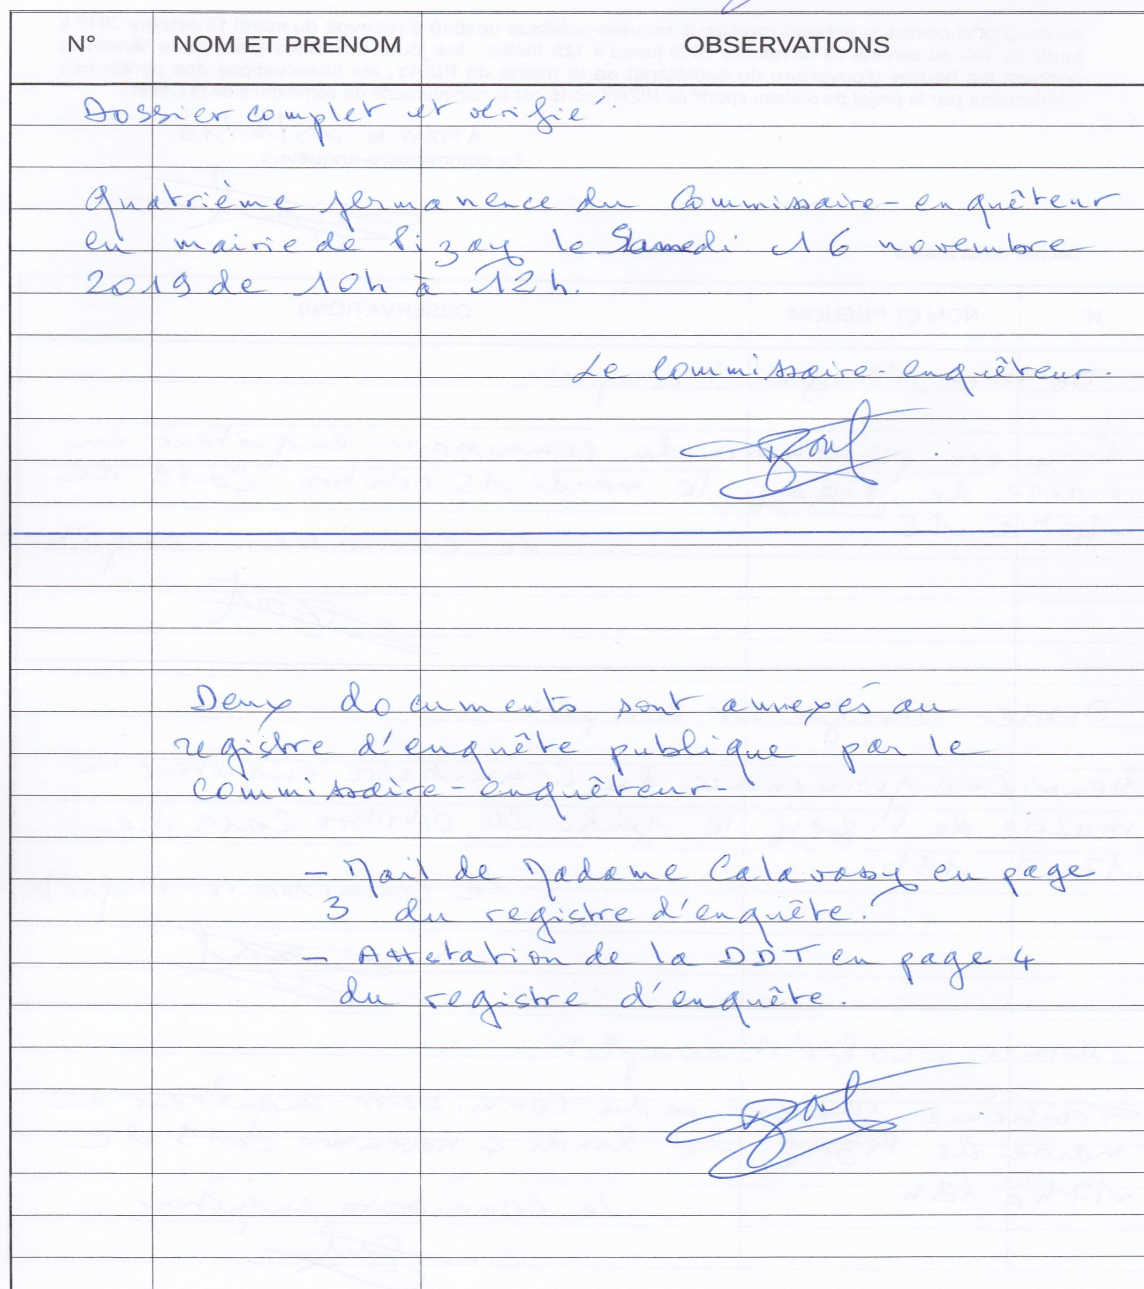 N° NOM ET PRENOM OBSERVATIONS
Dossier complet et vérifié.
Quatrième permanence du Commissaire-enquêteur
en mairie de Pizay le Samedi 16 novembre
2019 de 10h à 12h.
Le Commissaire-enquêteur.
Deux documents sont annexés au
registre d'enquête publique par le
Commissaire-enquêteur-
- Mail de Madame Calavassy en page
3 du registre d'enquête.
- Attetation de la DDT en page 4
du registre d'enquête.